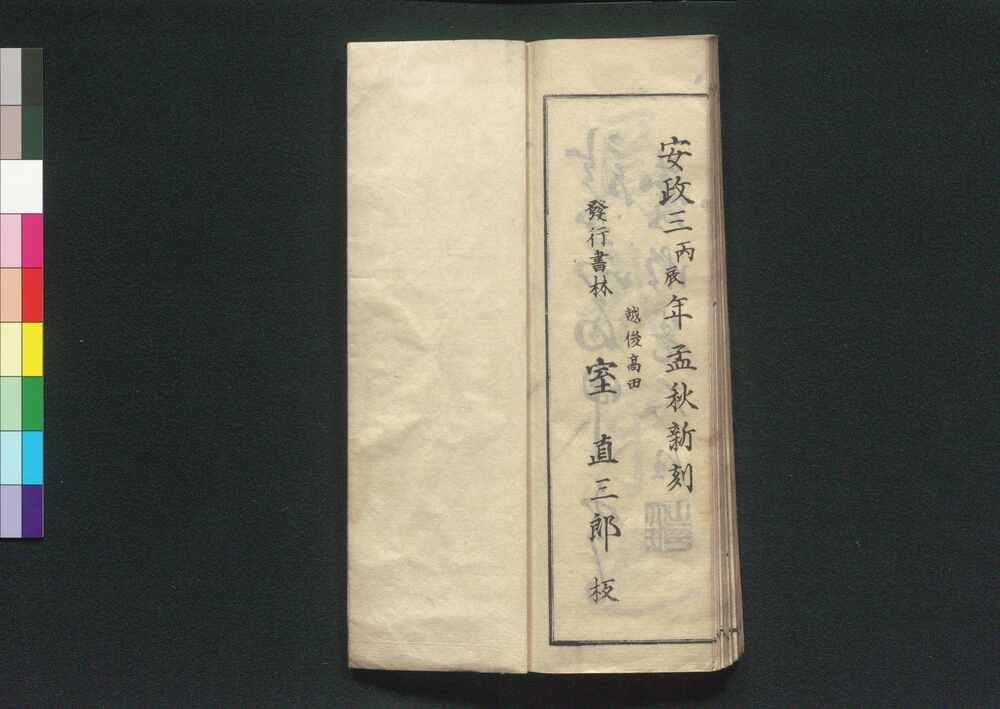 安政三丙辰年孟秋新刻
越後高田
發行書林 室 直三郎 板